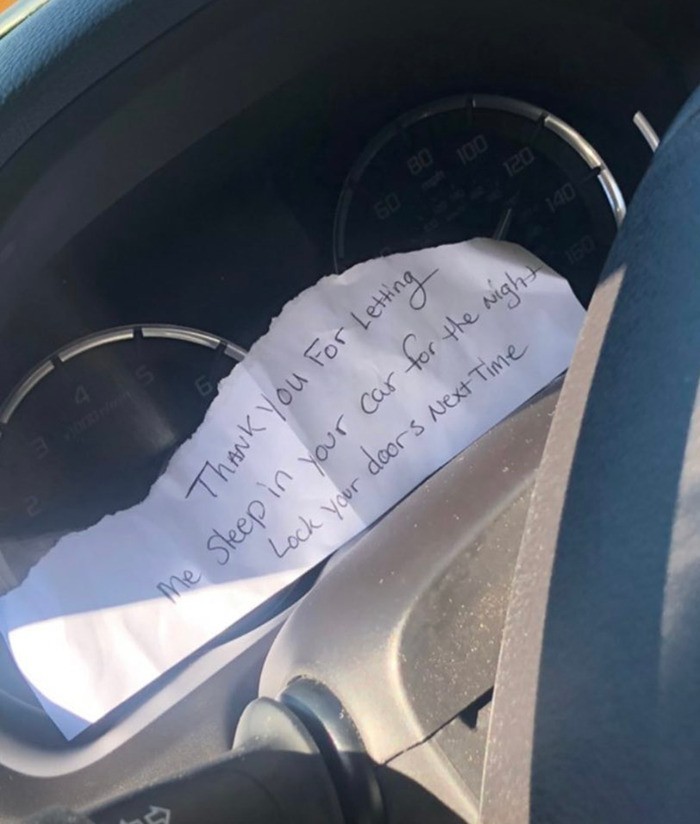 THANK you For Letting
Me Sleep in your car for the night
Lock your doors Next Time
60
80
100
120
140
160
2
3
4
5
6